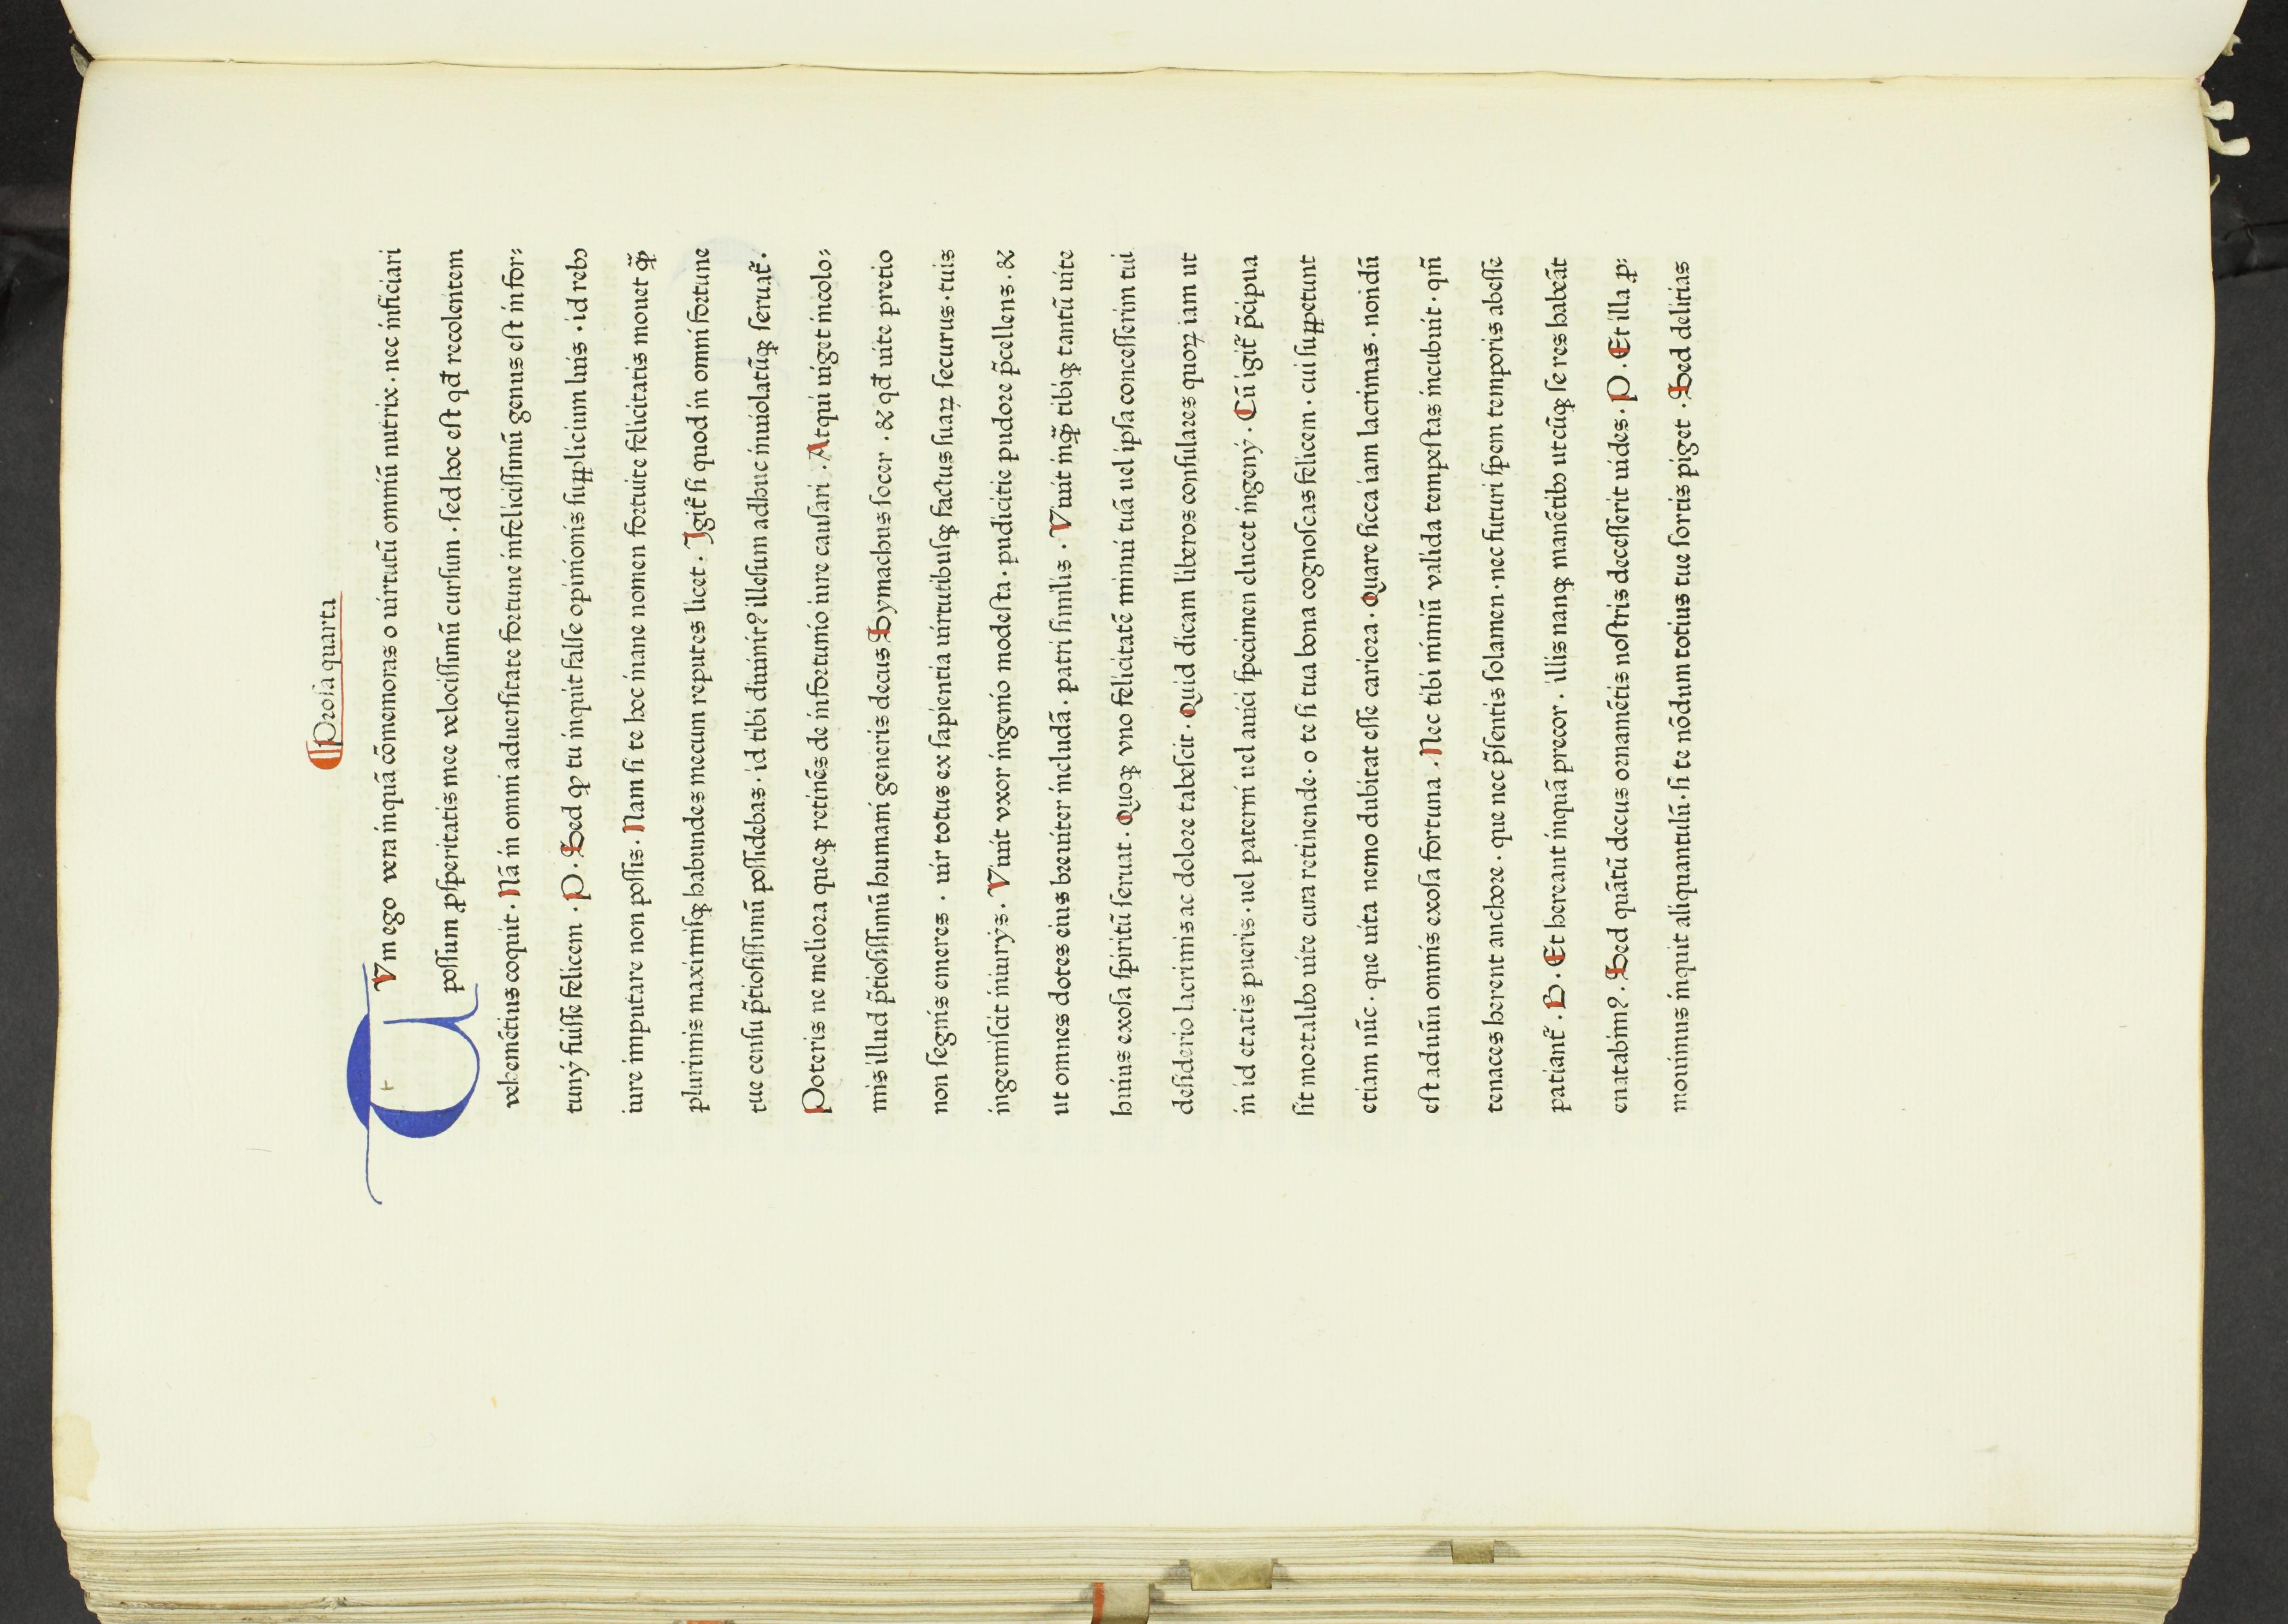 ¶Prosa quarta
TVm ego vera inquā cōmemoras o uirtutū omniū nutrix · nec inficiari
possum ꝓsperitatis mee velocissimū cursum · sed hoc est qđ recolentem
vehemētius coquit · Nā in omni aduersitate fortune infelicissimū genus est infor⸗
tunÿ fuisse felicem · P · Sed ꝙ tu inquit false opinionis supplicium luis · id rebꝰ
iure imputare non possis · Nam si te hoc inane nomen fortuite felicitatis mouet ꝙ̄
plurimis maximisqꝫ habundes mecum reputes licet · Igit̄ si quod in omni fortune
tue censu p̄tiosissimū possidebas · id tibi diuinitꝰ illesum adhuc inuiolatūqꝫ seruat̄ ·
Poteris ne meliora queqꝫ retinēs de infortunio iure causari · Atqui uiget incolo⸗
mis illud p̄tiosissimū humani generis decus Symachus socer · & qđ uite pretio
non segnis emeres · uir totus ex sapientia uirtutibusqꝫ factus suaꝝ securus · tuis
ingemiscit iniurÿs · Viuit vxor ingenio modesta · pudicitie pudore p̄cellens · &
ut omnes dotes eius breuiter includā · patri similis · Viuit inꝙ̄ tibiqꝫ tantū uite
huius exosa spiritū seruat · Quoqꝫ vno felicitatē minui tuā uel ipsa concesserim tui
desiderio lacrimis ac dolore tabescit · Quid dicam liberos consulares quoꝝ iam ut
in id etatis pueris · uel paterni uel auici specimen elucet ingenÿ · Cū igit̄ p̄cipua
sit mortalibꝰ uite cura retinende · o te si tua bona cognoscas felicem · cui suppetunt
etiam nūc · que uita nemo dubitat esse cariora · Quare sicca iam lacrimas · nondū
est ad unū omnis exosa fortuna · Nec tibi nimiū valida tempestas incubuit · qm̄
tenaces herent anchore · que nec p̄sentis solamen · nec futuri spem temporis abesse
patiant̄ · B · Et hereant inquā precor · illis nanqꝫ manētibꝰ utcūqꝫ se res habeāt
enatabimꝰ · Sed quātū decus ornamētis nostris decesserit uides · P · Et illa ꝓ⸗
mouimus inquit aliquantulū · si te nōdum totius tue sortis piget · Sed delitias